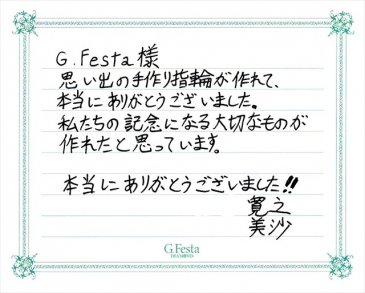 G.Festa様
思い出の手作り指輪が作れて、
本当にありがとうございました。
私たちの記念になる大切なものが
作れたと思っています。
本当にありがとうございました!!
寛之
美沙
G.Festa
DIAMOND